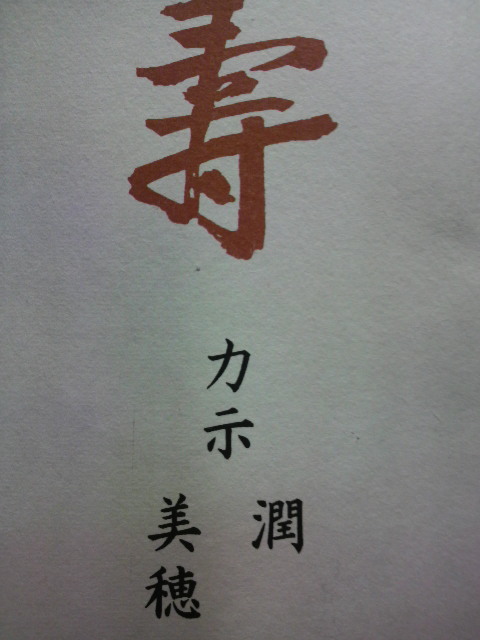 寿
力示
潤
美穂